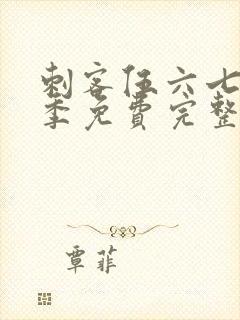 刺客伍六七
季免費完整
覃菲